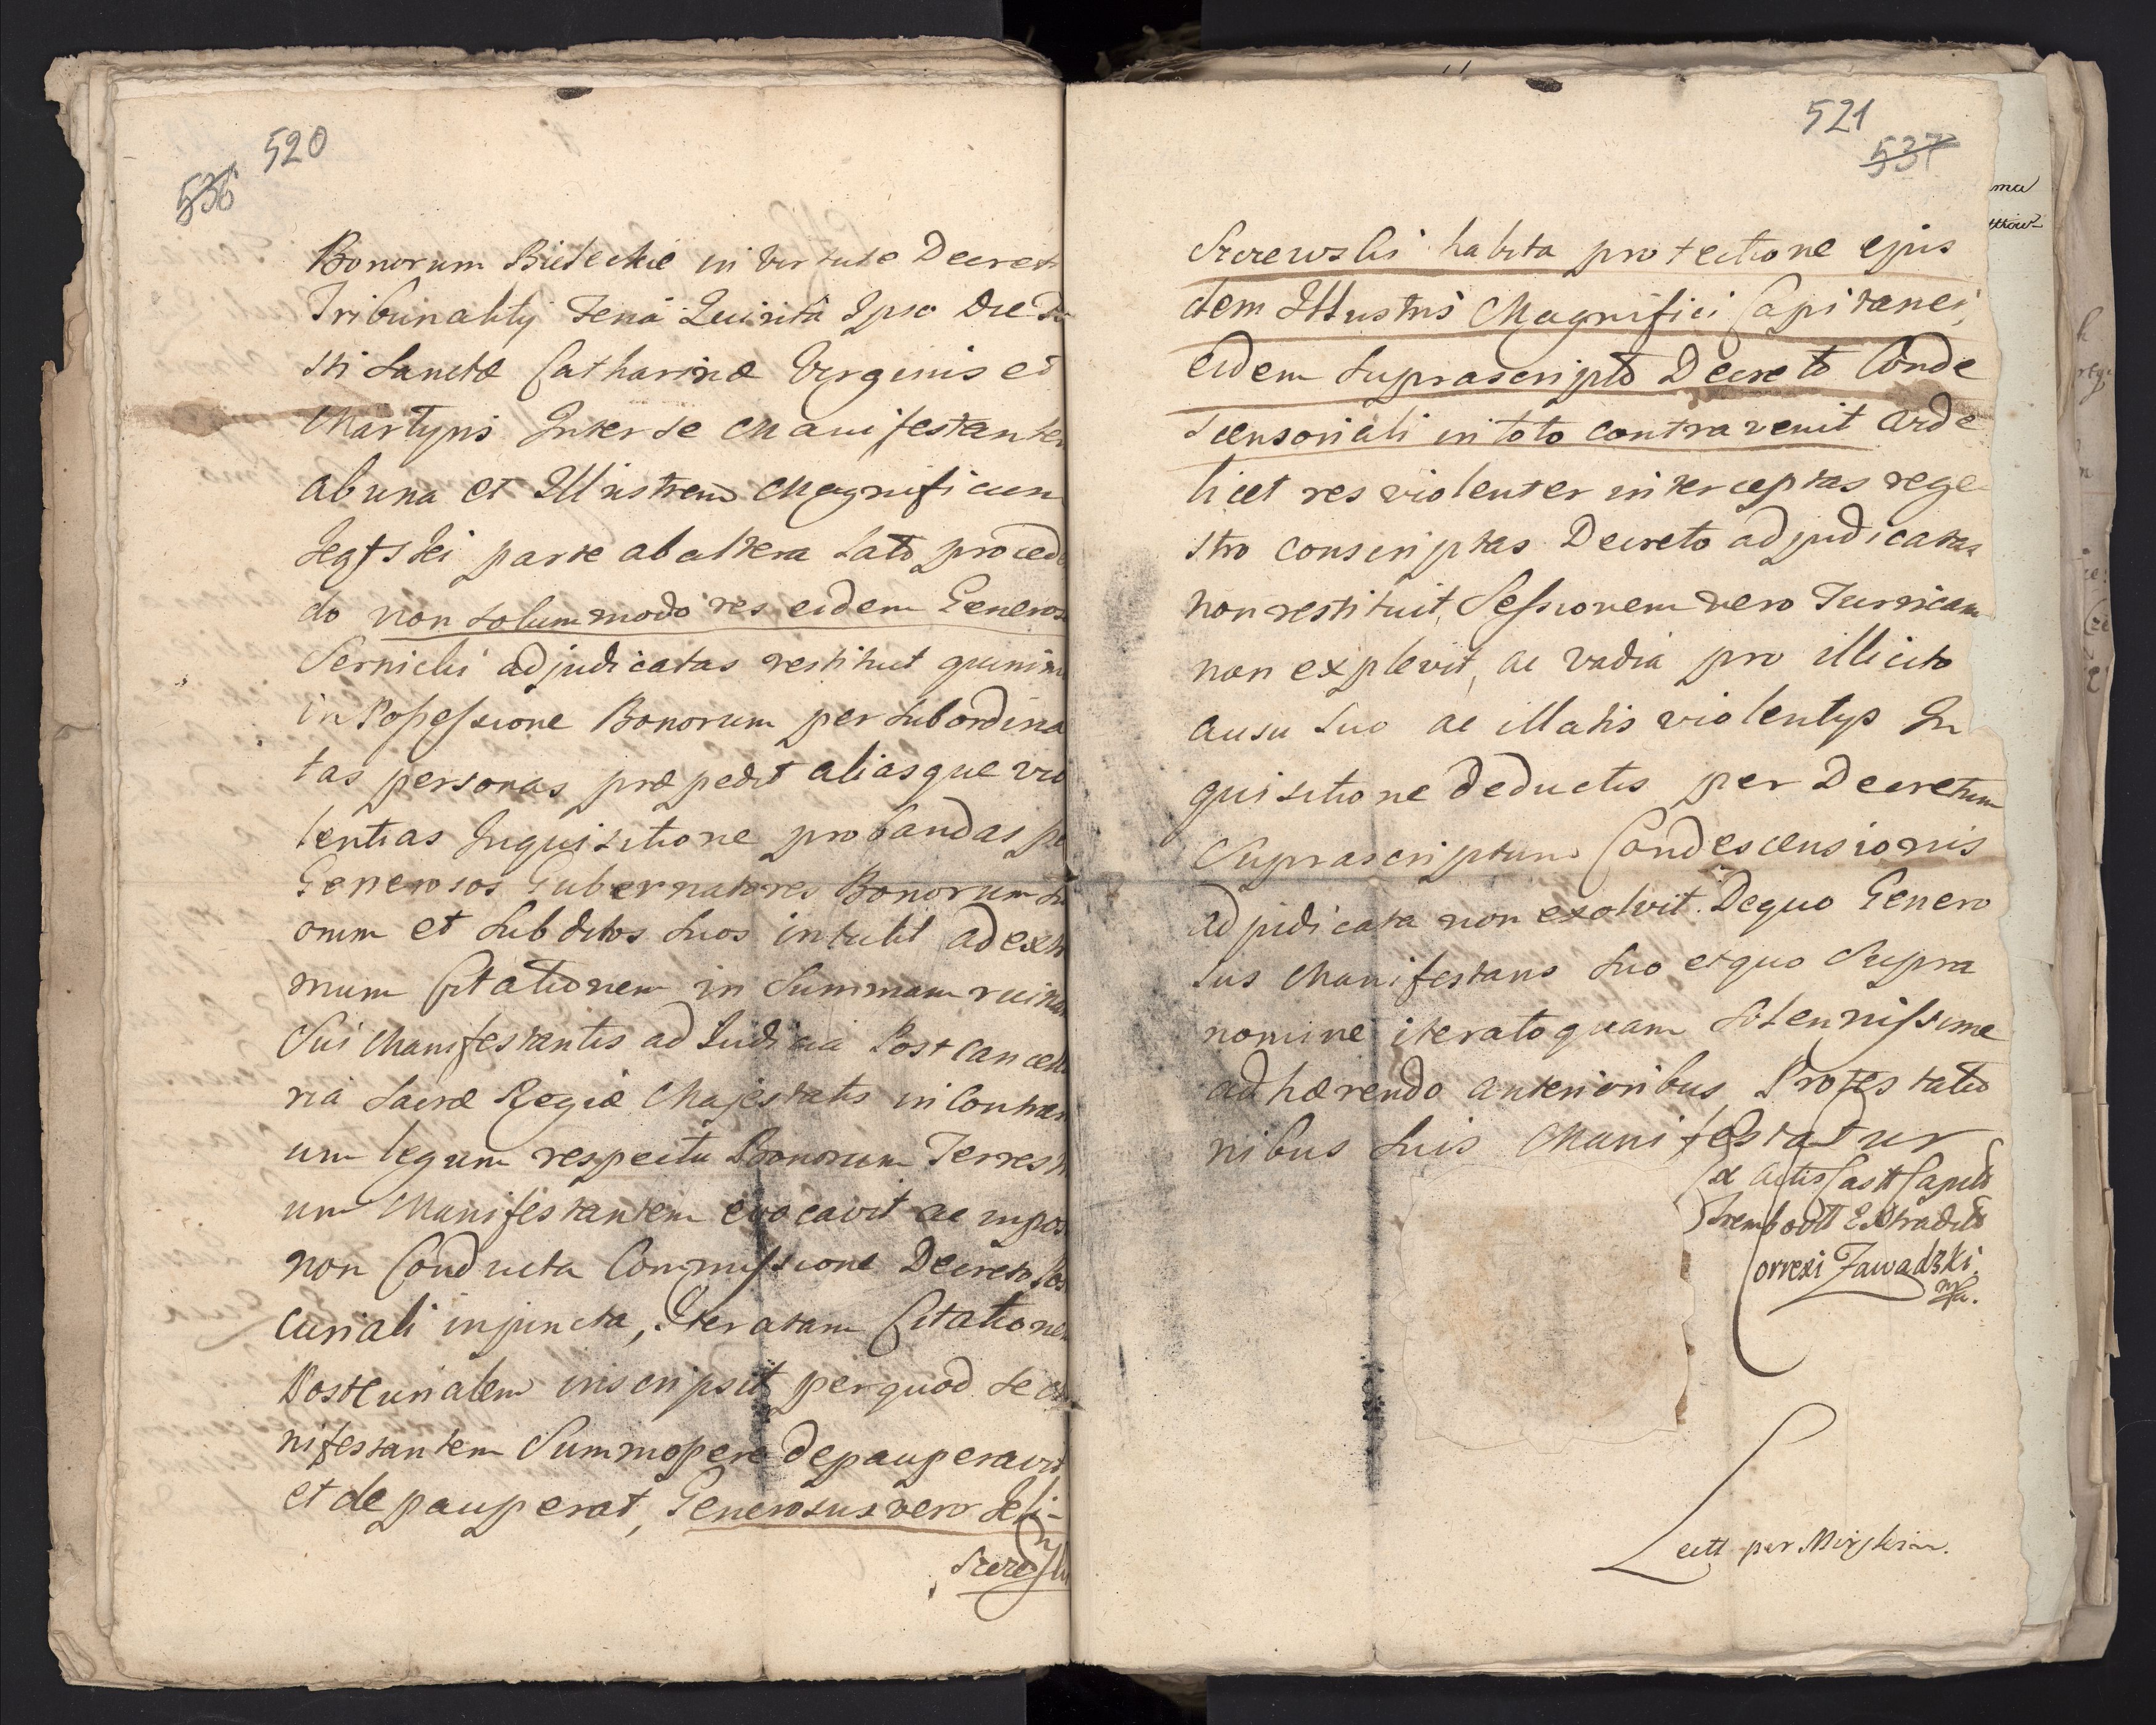 520
536
Bonorum Biedechie in Virtute Decret
Tribunalitÿ Feria Quinta Ipso Die
sti Sanctæ Catharinæ Virginis et
Martyris Inter se Manifestantem
ab una et Illustrem Magnificum
parte ab altera lato proced
do non solummodo res eidem Generoso
Sernicki adjudicatas restituit quinimo
in Possessione Bonorum per subordina
tas personas præpedit aliasque vio
lentias Inquisitione probandas pe
Generosos Gubernatores Bonorum su
orum et subditos suos intulit ad extr
mum Citationem in Summam ruinam
Sui Manifestantis ad Judicia Post Cancella
ria Sacræ Regiæ Majestatis in Contrari
um legum respectu Bonorum Terrestri
um Manifestantem evocavit ac impos
non Conducta Commissione Decreto Pos
curiali injuncta, Iteratam Citationem
Postcurialem inscripsit perquod se Ma
nifestantem Summopere depauperavit
et depauperat, Generosus vero Feli-
521
537
Szczewski habita protectione ejus
dem Illustris Magnifici Capitanei,
eidem Suprascripto Decreto Conde
scensoriali in toto contravenit vide
licet res violenter interceptas rege
stro conscriptas Decreto adjudicatas
non restituit, Sessionem vero Turricam
non explevit, ac vadia pro illicito
ausu suo ac illatis violentÿs In
quisitione deductis per Decretum
Suprascriptum Condescensionis
adjudicata non exolvit. Dequo Genero
sus Manifestans suo etquo Supra
nomine iteratoquam solennissime
adhærendo anterioribus Protestatio
nibus suis Manifestatur
Ex Actis Castr Capitl
Trembowl Extradit
Correxi Zawadzki
mp.
Lectt per
ma